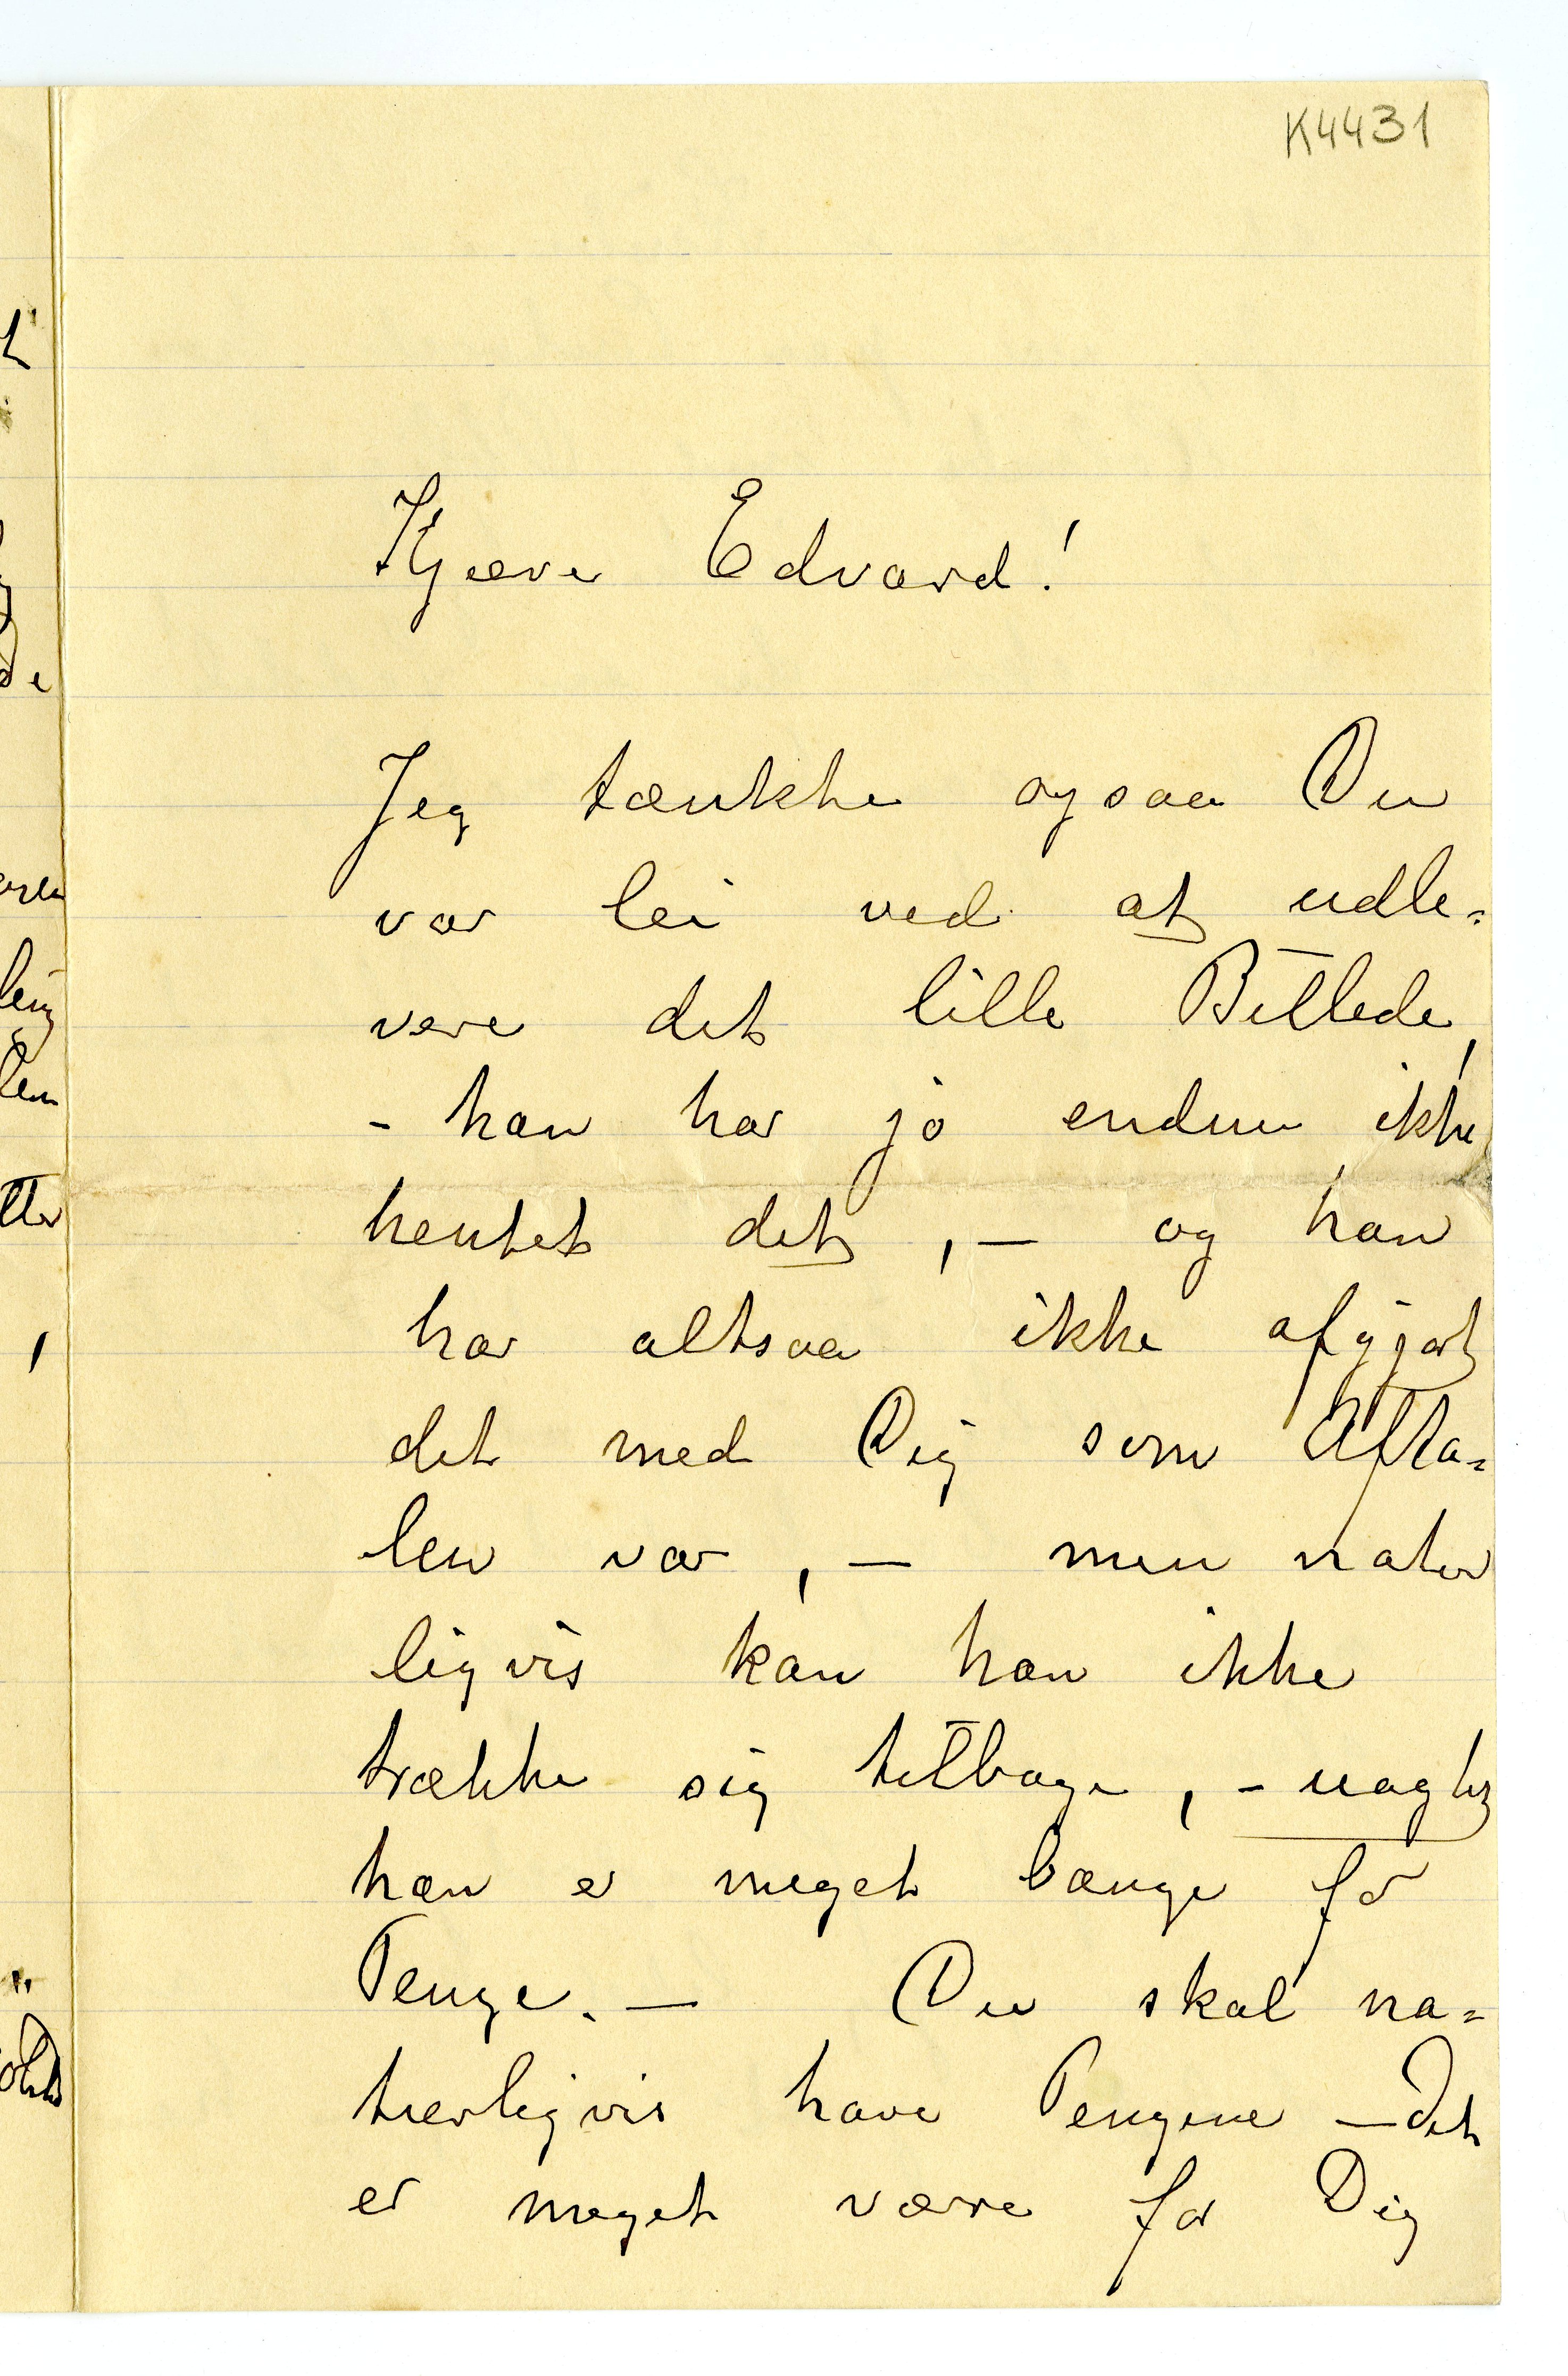 K4431
Kjære Edvard!
Jeg tænkte ogsaa Du
var lei ved at udle=
vere det lille Billede,
- han har jo endnu ikke
hentet det, — og han
har altsaa ikke afgjort
det med Dig som Afta=
len var, — men natur
ligvis kan han ikke
trække sig tilbage, -
han er meget bange for
Penge. — Du skal na=
turligvis have Pengene — det
er meget værre for Dig